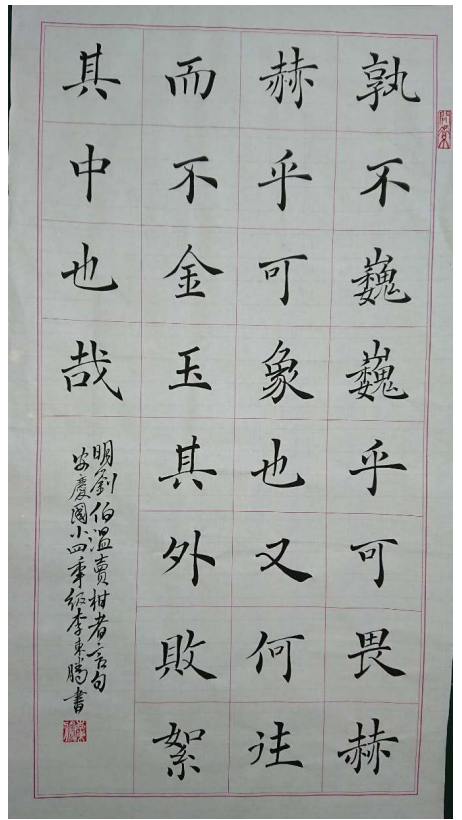 孰不巍巍乎可畏赫
赫乎可象也又何往
而不金玉其外敗絮
其中也哉
明劉伯溫賣柑者言句
安慶國小四年級李東騰書